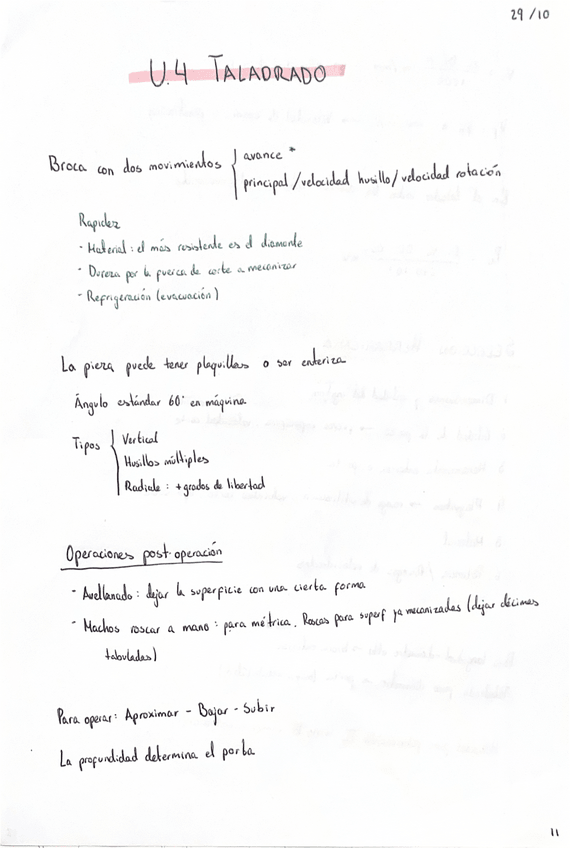 29/10
U.4 TALADRADO
Broca con dos movimientos { avance *
principal / velocidad husillo / velocidad rotación
Rapidez
- Material: el más resistente es el diamante
- Dureza por la fuerza de corte a mecanizar
- Refrigeración (evacuación)
La pieza puede tener plaquillas o ser enteriza
Ángulo estándar 60° en máquina
Tipos { Vertical
Husillos múltiples
Radiale: + grados de libertad
Operaciones post-operación
- Avellanado: dejar la superficie con una cierta forma
- Machos roscar a mano: para métrica. Roscas para superf ya mecanizadas (dejar décimas
tabuladas)
Para operar: Aproximar - Bajar - Subir
La profundidad determina el porta
11